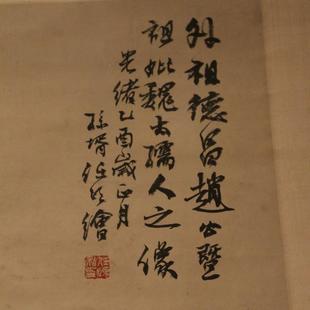 外祖德昌趙公暨
祖妣魏太孺人之像
光緒乙酉歲正月
孫婿任頤繪